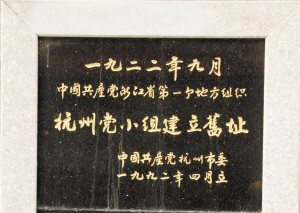 一九二二年九月
中國共產党浙江省第一个地方组织
杭州党小组建立舊址
中國共產党杭州市委
一九九二年四月立